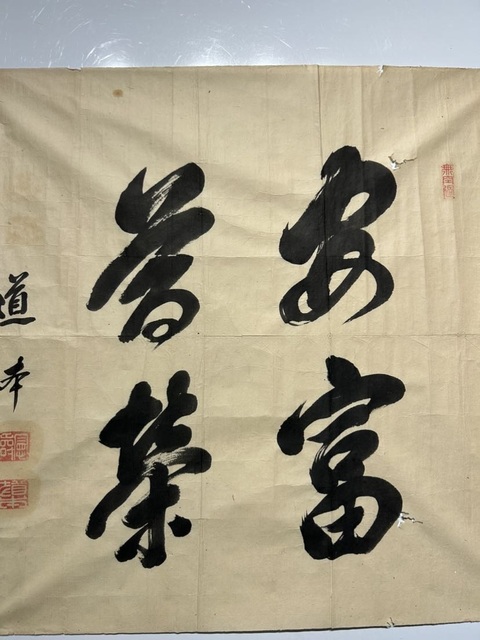 安富
尊榮
道本